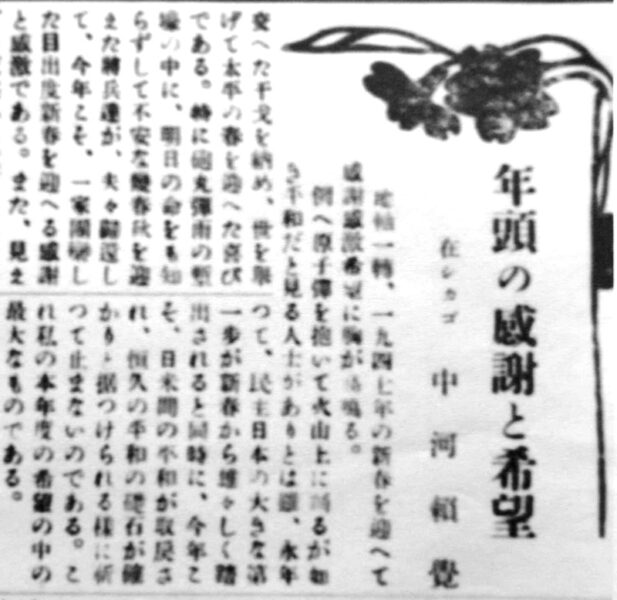 年頭の感謝と希望
在シカゴ 中河頼覺
地軸一轉、一九四七年の新春を迎へて
感謝感激希望に胸が高鳴る。
例へ原子彈を抱いて火山上に踊るが如
き平和だと見る人士がありとは雖、永年
變へた干戈を納め、世を擧
げて太平の春を迎へた喜び
である。特に砲丸彈雨の塹
壕の中に、明日の命をも知
らずして不安な幾春秋を迎
えた將兵達が、夫々歸還し
て、今年こそ、一家團欒し
た目出度新春を迎へる感謝
と感激である。また、見ま
つて、民主日本の大きな第
一歩が新春から雄々しく踏
出されると同時に、今年こ
そ、日米間の平和が取戻さ
れ、恒久の平和の礎石が確
かりと据つけられる樣に祈
つて止まないのである。こ
れ私の本年度の希望の中の
最大なものである。